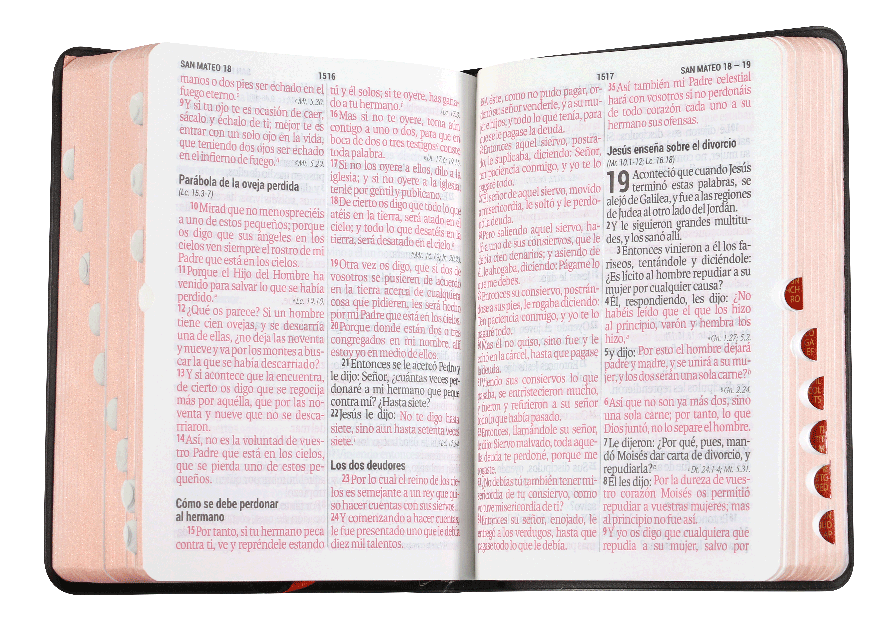 SAN MATEO 18
1516
manos o dos pies ser echado en el
fuego eterno.
9Y si tu ojo te es ocasión de caer,
sácalo y échalo de ti; mejor te es
entrar con un solo ojo en la vida,
que teniendo dos ojos ser echado
en el infierno de fuego.
Parábola de la oveja perdida
(Lc. 15.3-7)
10Mirad que no menospreciéis
a uno de estos pequeños; porque
os digo que sus ángeles en los
cielos ven siempre el rostro de mi
Padre que está en los cielos.
11Porque el Hijo del Hombre ha
venido para salvar lo que se había
perdido.
12¿Qué os parece? Si un hombre
tiene cien ovejas, y se descarría
una de ellas, ¿no deja las noventa
y nueve y va por los montes a bus-
car la que se había descarriado?
13Y si acontece que la encuentra,
de cierto os digo que se regocija
más por aquélla, que por las no-
venta y nueve que no se desca-
rriaron.
14Así, no es la voluntad de vues-
tro Padre que está en los cielos,
que se pierda uno de estos pe-
queños.
Cómo se debe perdonar
al hermano
15Por tanto, si tu hermano peca
contra ti, ve y repréndele estando
tú y él solos; si te oyere, has gana-
do a tu hermano.
16Mas si no te oyere, toma aún
contigo a uno o dos, para que en
boca de dos o tres testigos conste
toda palabra.
17Si no los oyere a ellos, dilo a la
iglesia; y si no oyere a la iglesia,
tenle por gentil y publicano.
18De cierto os digo que todo lo que
atéis en la tierra, será atado en el
cielo; y todo lo que desatéis en la
tierra, será desatado en el cielo.
19Otra vez os digo, que si dos de
vosotros se pusieren de acuerdo
en la tierra acerca de cualquiera
cosa que pidieren, les será hecho
por mi Padre que está en los cielos.
20Porque donde están dos o tres
congregados en mi nombre, allí
estoy yo en medio de ellos.
21Entonces se le acercó Pedro y
le dijo: Señor, ¿cuántas veces per-
donaré a mi hermano que peque
contra mí? ¿Hasta siete?
22Jesús le dijo: No te digo hasta
siete, sino aun hasta setenta veces
siete.
Los dos deudores
23Por lo cual el reino de los cie-
los es semejante a un rey que qui-
so hacer cuentas con sus siervos.
24Y comenzando a hacer cuentas,
le fue presentado uno que le debía
diez mil talentos.
1517
SAN MATEO 18 – 19
A éste, como no pudo pagar, or-
señor venderle, y a su mu-
hijos, y todo lo que tenía, para
que se le pagase la deuda.
Entonces aquel siervo, postra-
le suplicaba, diciendo: Señor,
paciencia conmigo, y yo te lo
pagaré todo.
señor de aquel siervo, movido
misericordia, le soltó y le perdo-
la deuda.
Pero saliendo aquel siervo, ha-
uno de sus consiervos, que le
cien denarios; y asiendo de
le ahogaba, diciendo: Págame lo
que me debes.
Entonces su consiervo, postrán-
a sus pies, le rogaba diciendo:
Ten paciencia conmigo, y yo te lo
pagaré todo.
Mas él no quiso, sino fue y le
en la cárcel, hasta que pagase
deuda.
Viendo sus consiervos lo que
pasaba, se entristecieron mucho,
y refirieron a su señor
todo lo que había pasado.
Entonces, llamándole su señor,
le dijo: Siervo malvado, toda aque-
deuda te perdoné, porque me
¿No debías tú también tener mi-
sericordia de tu consiervo, como
tuve misericordia de ti?
Entonces su señor, enojado, le
entregó a los verdugos, hasta que
pagase todo lo que le debía.
35Así también mi Padre celestial
hará con vosotros si no perdonáis
de todo corazón cada uno a su
hermano sus ofensas.
Jesús enseña sobre el divorcio
(Mr. 10.1-12; Lc. 16.18)
19 Aconteció que cuando Jesús
terminó estas palabras, se
alejó de Galilea, y fue a las regiones
de Judea al otro lado del Jordán.
2Y le siguieron grandes multitu-
des, y los sanó allí.
3Entonces vinieron a él los fa-
riseos, tentándole y diciéndole:
¿Es lícito al hombre repudiar a su
mujer por cualquier causa?
4Él, respondiendo, les dijo: ¿No
habéis leído que el que los hizo
al principio, varón y hembra los
hizo,
Gn. 1.27; 5.2.
5y dijo: Por esto el hombre dejará
padre y madre, y se unirá a su mu-
jer, y los dos serán una sola carne?
Gn. 2.24.
6Así que no son ya más dos, sino
una sola carne; por tanto, lo que
Dios juntó, no lo separe el hombre.
7Le dijeron: ¿Por qué, pues, man-
dó Moisés dar carta de divorcio, y
repudiarla?
Dt. 24.1-4; Mt. 5.31.
8Él les dijo: Por la dureza de vues-
tro corazón Moisés os permitió
repudiar a vuestras mujeres; mas
al principio no fue así.
9Y yo os digo que cualquiera que
repudia a su mujer, salvo por